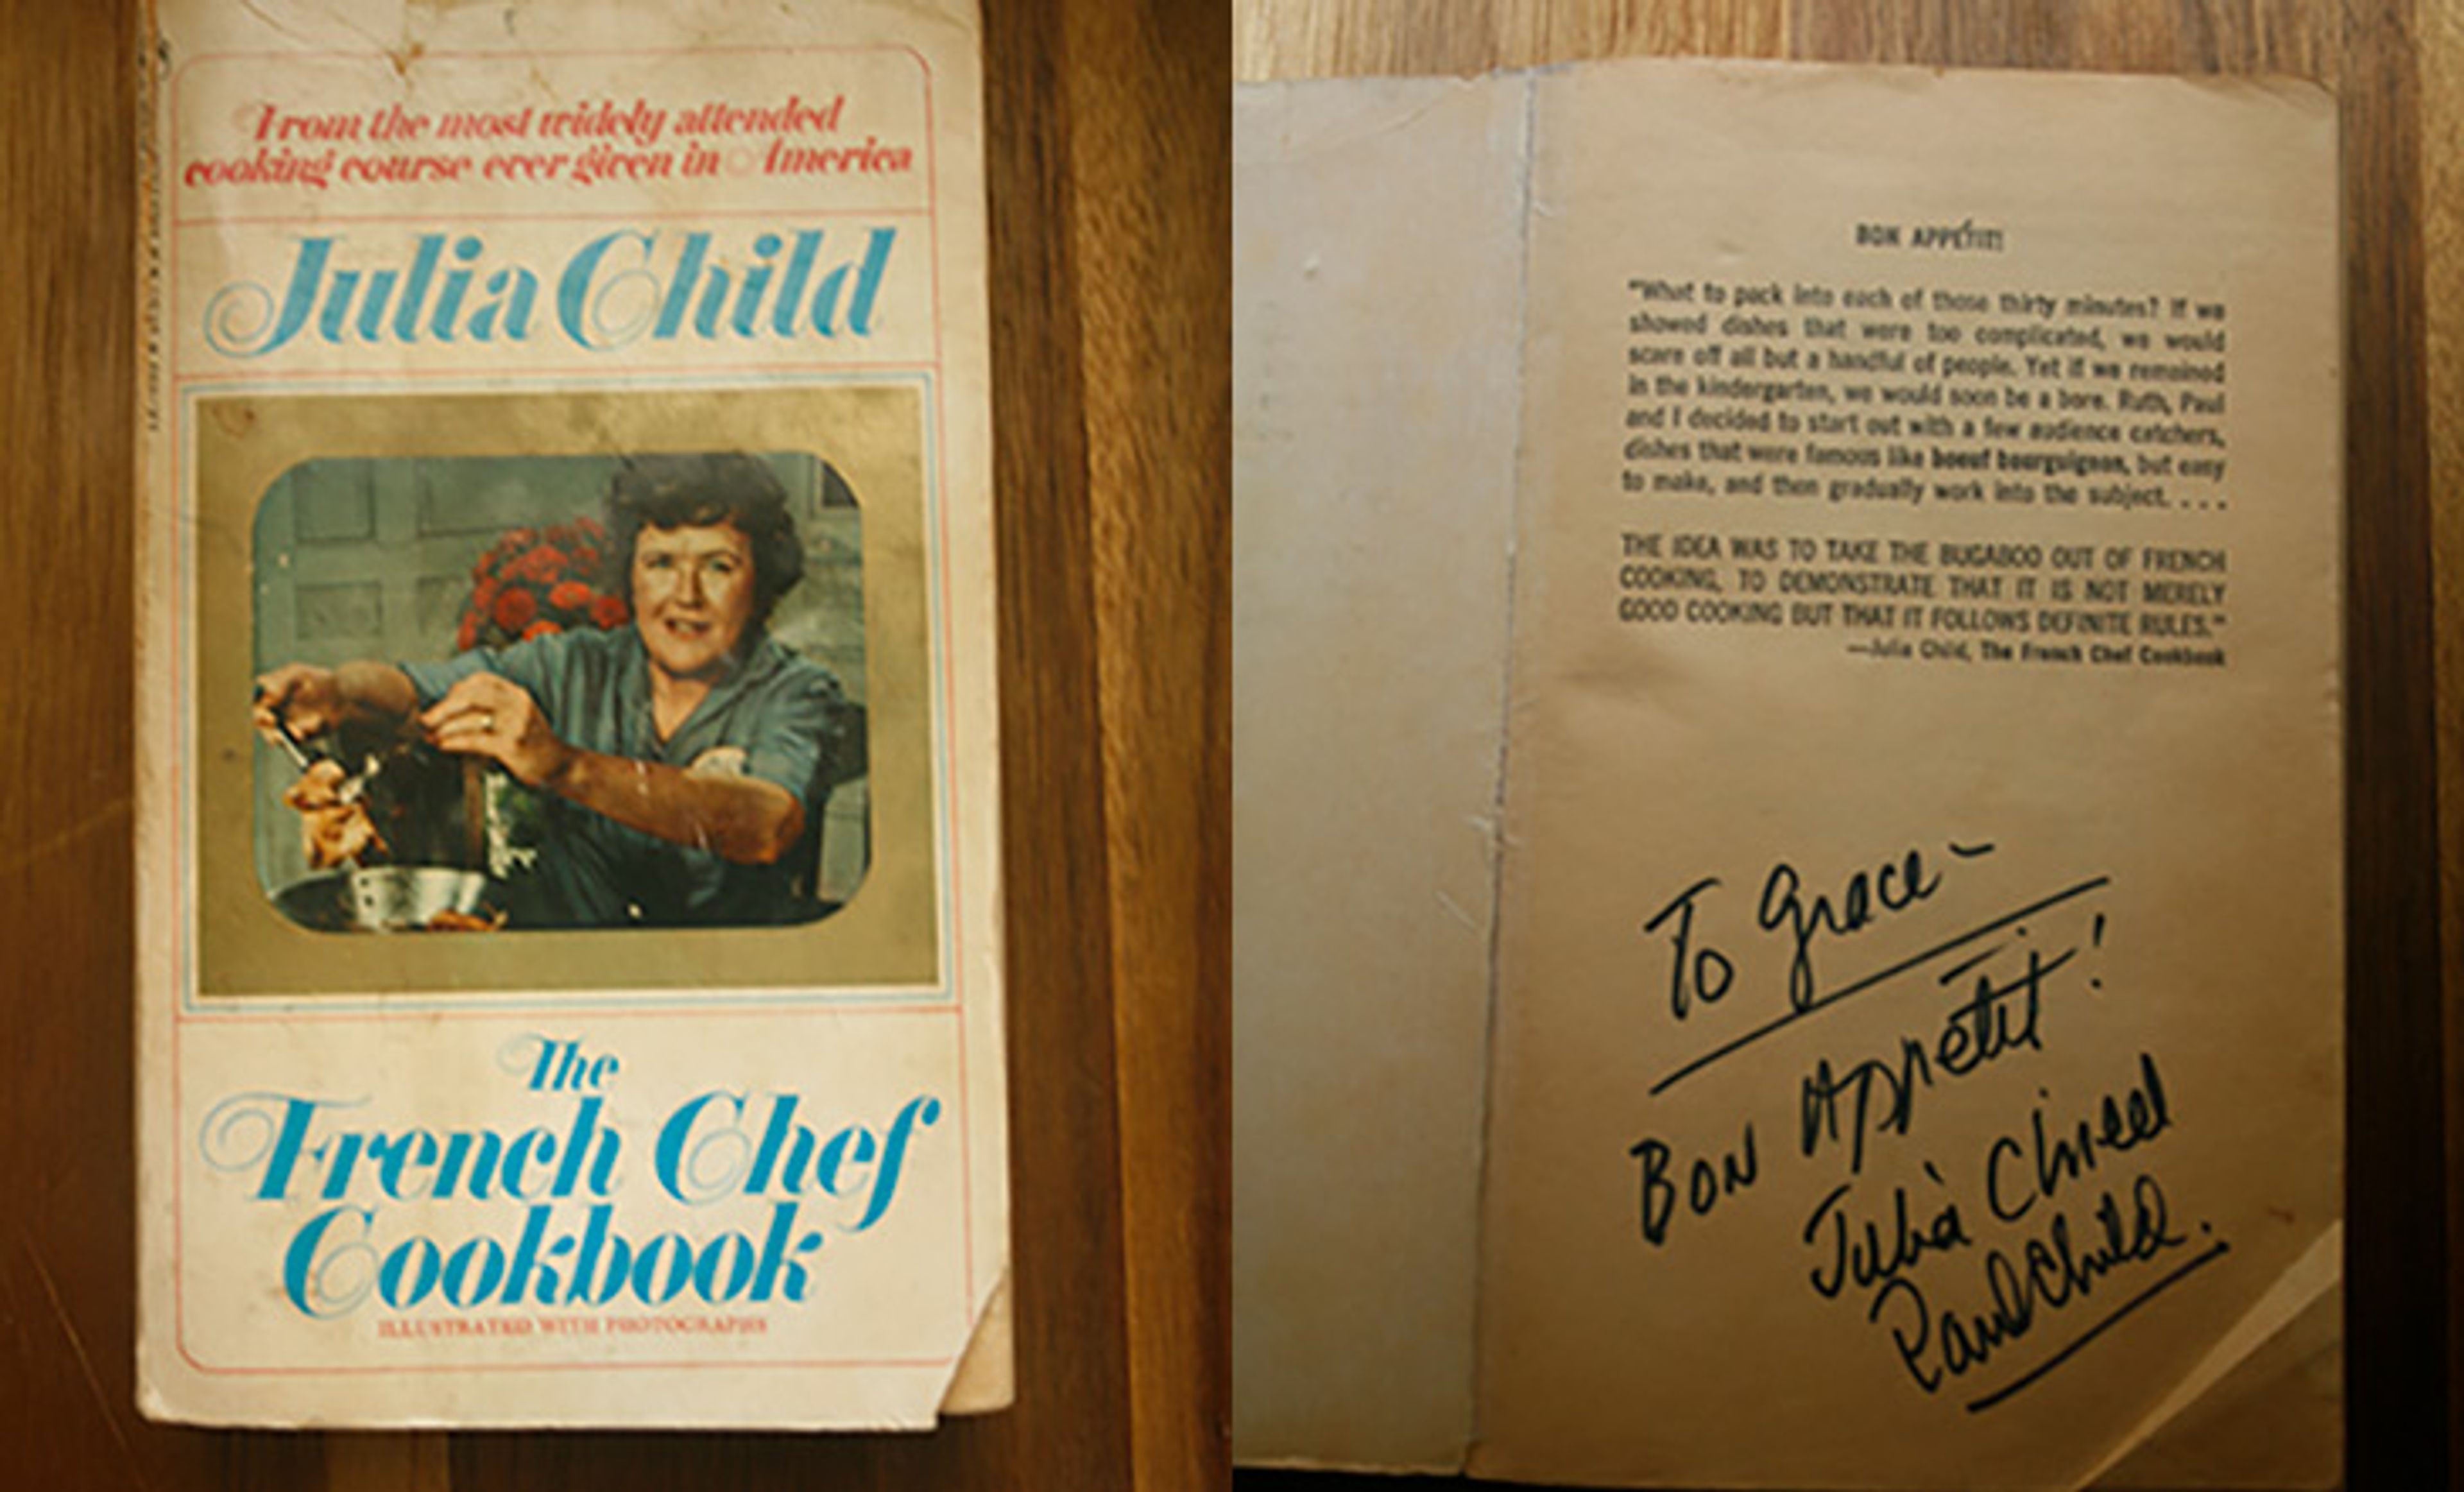 From the most widely attended
cooking course ever given in America
Julia Child
The
French Chef
Cookbook
ILLUSTRATED WITH PHOTOGRAPHS
BON APPÉTIT!
"What to pack into each of those thirty minutes? If we
showed dishes that were too complicated, we would
scare off all but a handful of people. Yet if we remained
in the kindergarten, we would soon be a bore. Ruth, Paul
and I decided to start out with a few audience catchers,
dishes that were famous like boeuf bourguignon, but easy
to make, and then gradually work into the subject. . . .
THE IDEA WAS TO TAKE THE BUGABOO OUT OF FRENCH
COOKING, TO DEMONSTRATE THAT IT IS NOT MERELY
GOOD COOKING BUT THAT IT FOLLOWS DEFINITE RULES."
—Julia Child, The French Chef Cookbook
To Grace –
Bon Appétit!
Julia Child
Paul Child.